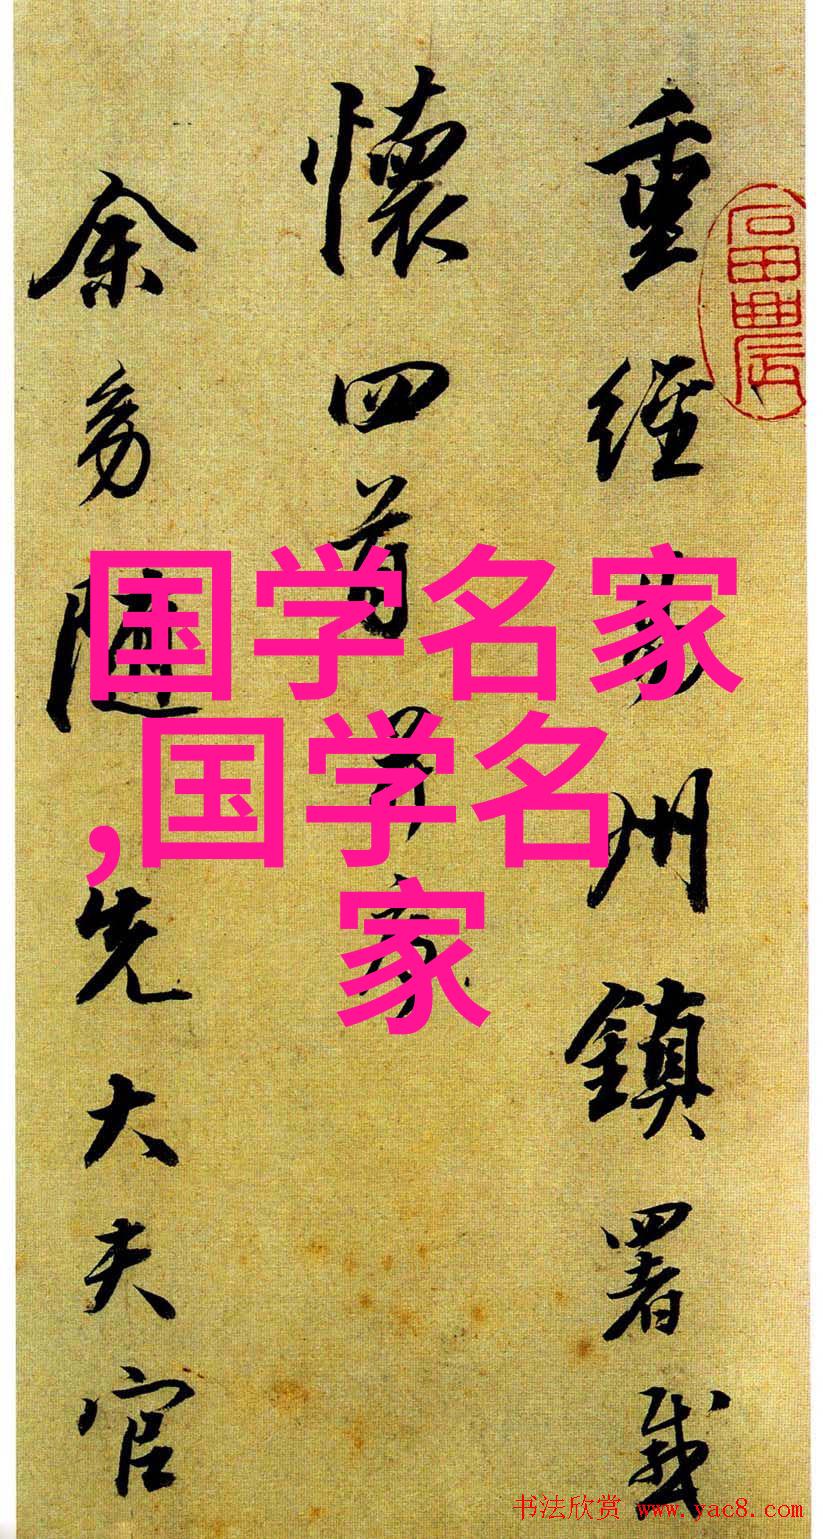 重經州鎮署感
懷四首并序
余幼隨先大夫官
国学名家
,国学名
家
书法欣赏 www.yac8.com